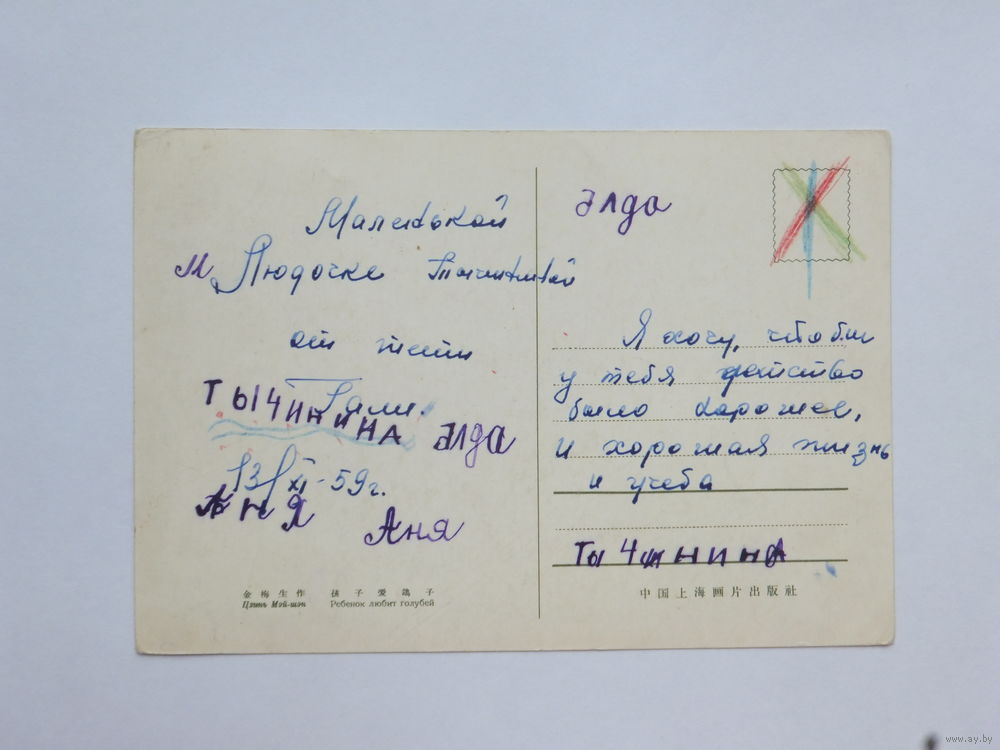 Маленькой
М. Людочке Тычининой
от тети
Гали.
ТЫЧИНИНА
Әлда
13/XI-59г.
Аня
Аня
金梅生作 孩子愛鴿子
Цзинь Мэй-шэн Ребенок любит голубей
Әлда
Я хочу, чтобы
у тебя детство
было хорошее,
и хорошая жизнь
и учеба
ТЫЧИНИНА
中国上海画片出版社
www.ay.by